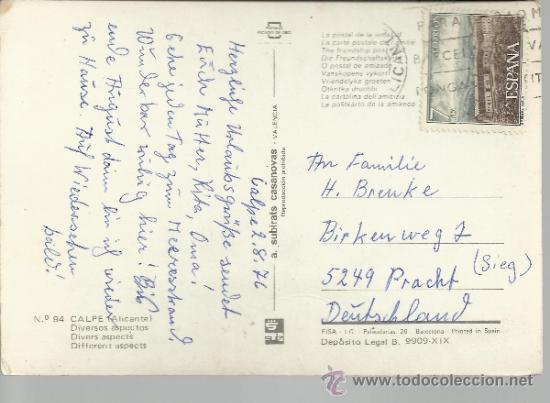 Calpe 2.8.76
Herzliche Urlaubsgrüße sendet
Euch Mutter, Rita, Oma!
Gehe jeden Tag zum Meeresstrand
Wunderbar ruhig hier! Bis
ende August dann bin ich wieder
zu Hause. Auf Wiedersehen
bald!
N.º 94 CALPE (Alicante)
Diversos aspectos
Divers aspects
Different aspects
a. subirats casanovas - VALENCIA
Reproducción prohibida
La postal de la amistad
La carte postale de l'amitié
The friendship post
Die Freundschaftskarte
O postal de amizade
Vanskapens vykort
Vriendelyke groeten
Otkritka druzhbi
La cartolina dell'amicizia
La poŝtkarto de la amikeco
CORREOS
ESPAÑA
7
PTAS
An Familie
H. Brenke
Birkenweg 7
5249 Pracht (Sieg)
Deutschland
FISA - I.G. - Palaudarias, 26 - Barcelona - Printed in Spain
Depósito Legal B. 9909-XIX
todocoleccion.net